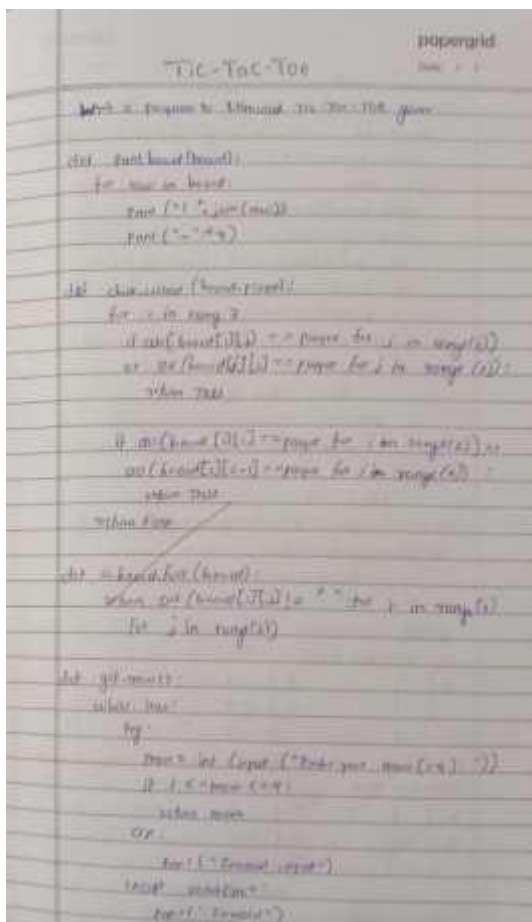 papergrid
Date: / /
Tic-Tac-Toe
a program to Tic Tac-Toe game
def print board(board):
for row in board:
print ("| ".join(row))
print ("-"*9)
def (board, player):
for i in range 3
if all(board[i][j] == player for j in range(3))
or all(board[j][i] == player for j in range(3)):
return True
if all(board[i][i] == player for i in range(3)) or
all(board[i][2-i] == player for i in range(3)) :
return True
return False
def board full(board):
return all(board[i][j] != " " for i in range(3)
for j in range(3))
def get-move():
while true:
try:
move = int (input ("Enter your move (1-9) : "))
if 1 <= move <= 9:
return move
print ("Invalid input")
print ("Invalid")